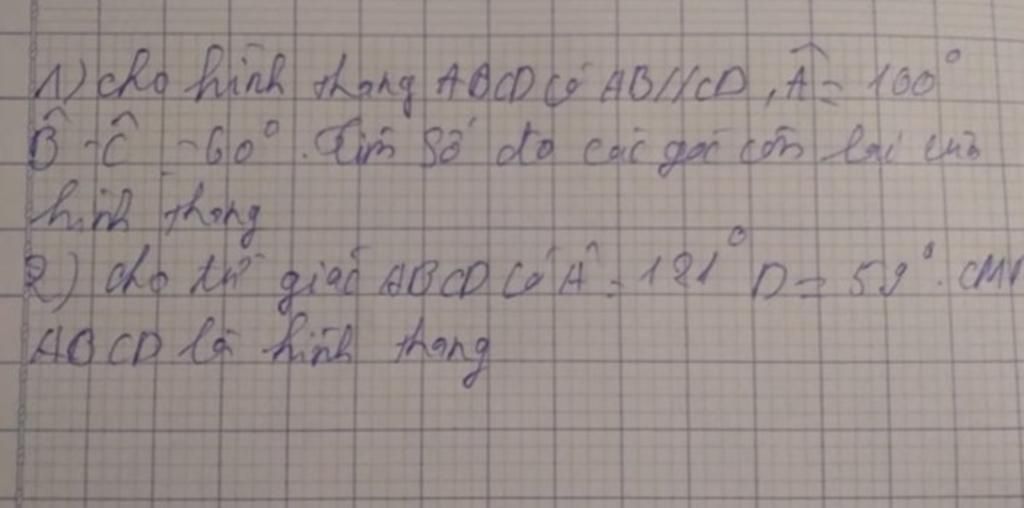 1) cho hình thang ABCD có AB//CD, Â = 100°
B̂ - Ĉ = 60°. Tìm số đo các góc còn lại của
hình thang
2) cho tứ giác ABCD có Â = 121° D = 59°. CMR
ABCD là hình thang